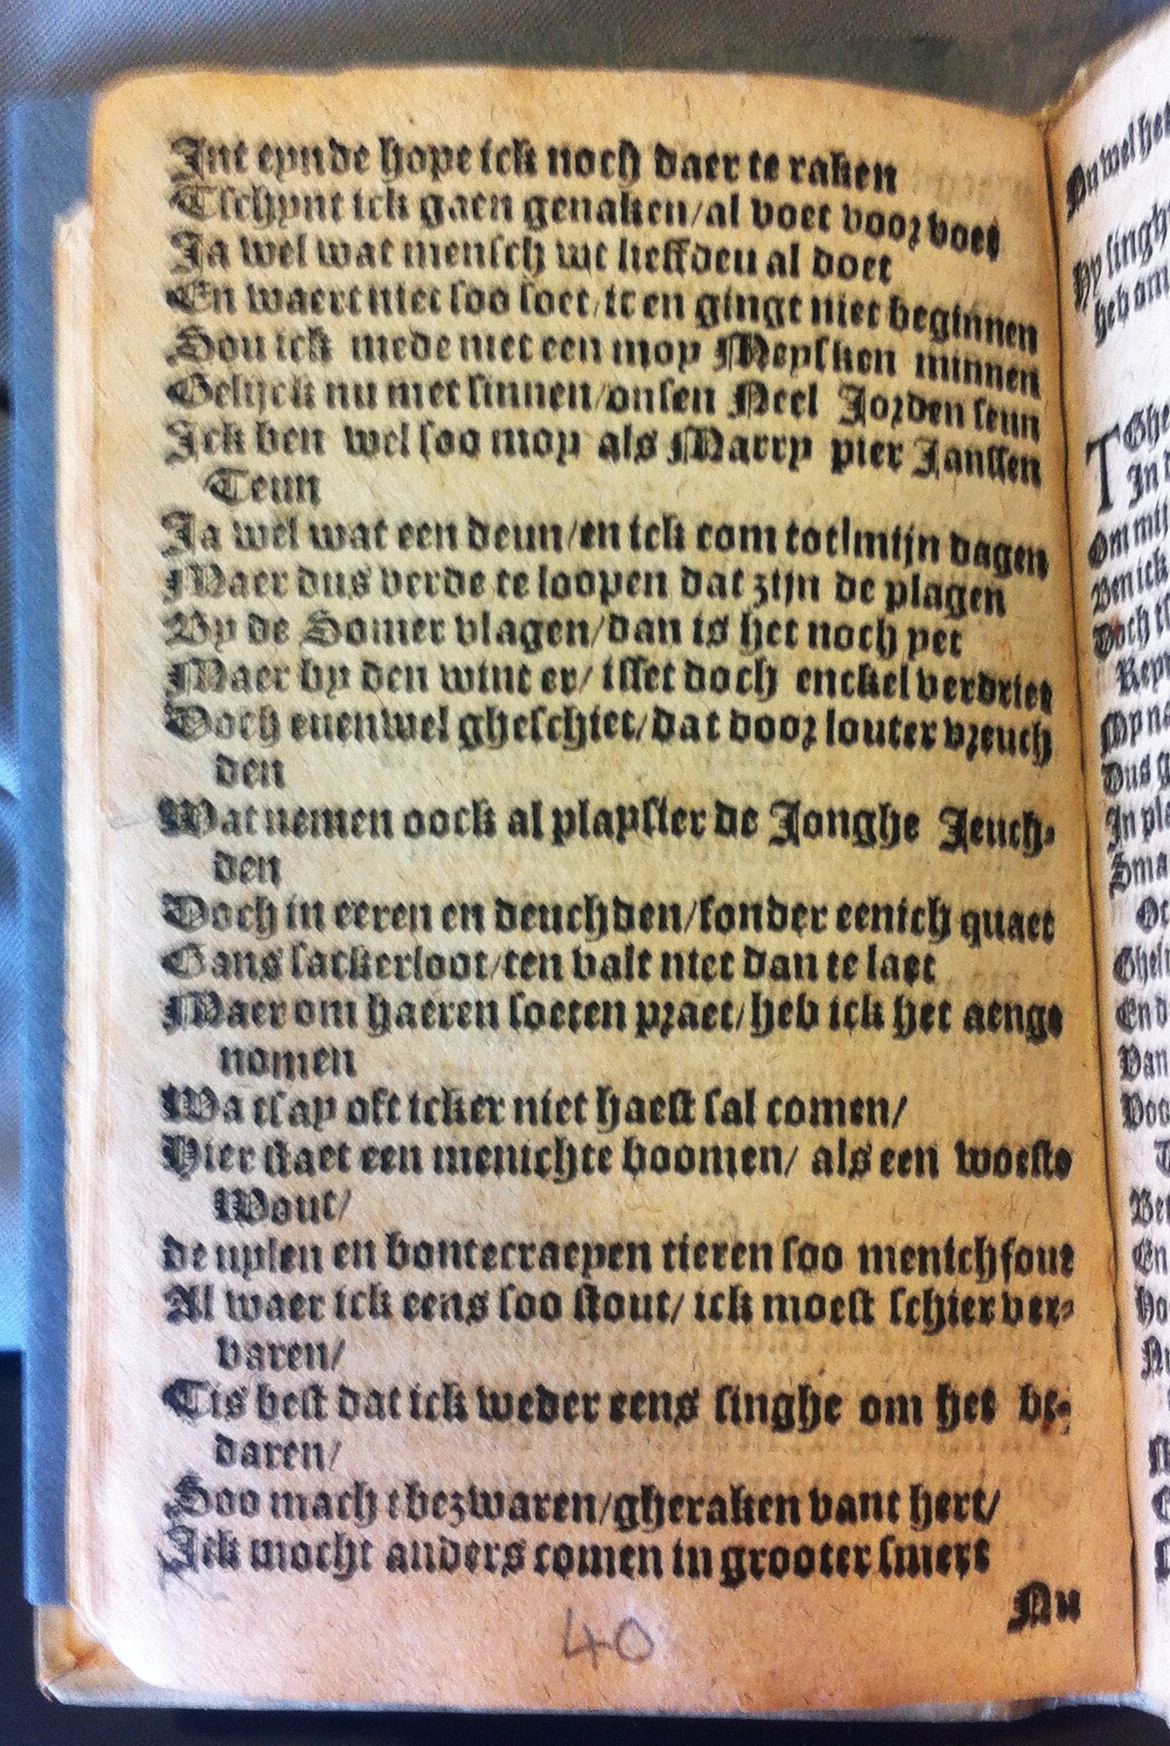 Int eynde hope ick noch daer te raken
Tschynt ick gaen genaken/al voet voor voet
Ja wel wat mensch wt lieffden al doet
En waert niet soo soet/it en gingt niet beginnen
Sou ick mede met een moy Meysken minnen
Gelijck nu met sinnen/onsen Neel Jorden seun
Ick ben wel soo moy als Marry pier Janssen
Teun
Ja wel wat een deun/en ick com tot mijn dagen
Maer dus verde te loopen dat zijn de plagen
By de Somer vlagen/dan is het noch yet
Maer by den wint er/ isset doch enckel verdriet
Doch euenwel gheschiet/dat door louter vreuch
den
Wat nemen oock al playsier de Jonghe Jeuch-
den
Doch in eeren en deuchden/sonder eenich quaet
Gans sackerloot/ten valt niet dan te laet
Maer om haeren soeten praet/heb ick het aenge
nomen
Wa tsay oft icker niet haest sal comen/
Hier staet een menichte boomen/ als een woeste
Wout/
de uylen en bontecraeyen tieren soo menichfout
Al waer ick eens soo stout/ ick moest schier ver-
varen/
Tis best dat ick weder eens singhe om het be-
daren/
Soo mach tbezwaren/gheraken vant hert/
Ick mocht anders comen in grooter smert
Nu
40
Nu wel het
Hy singh
heb om
Ghe
T
In d
Om mij
Ben ick
Doch
My na
Dus g
In pl
Sma
En d
Van